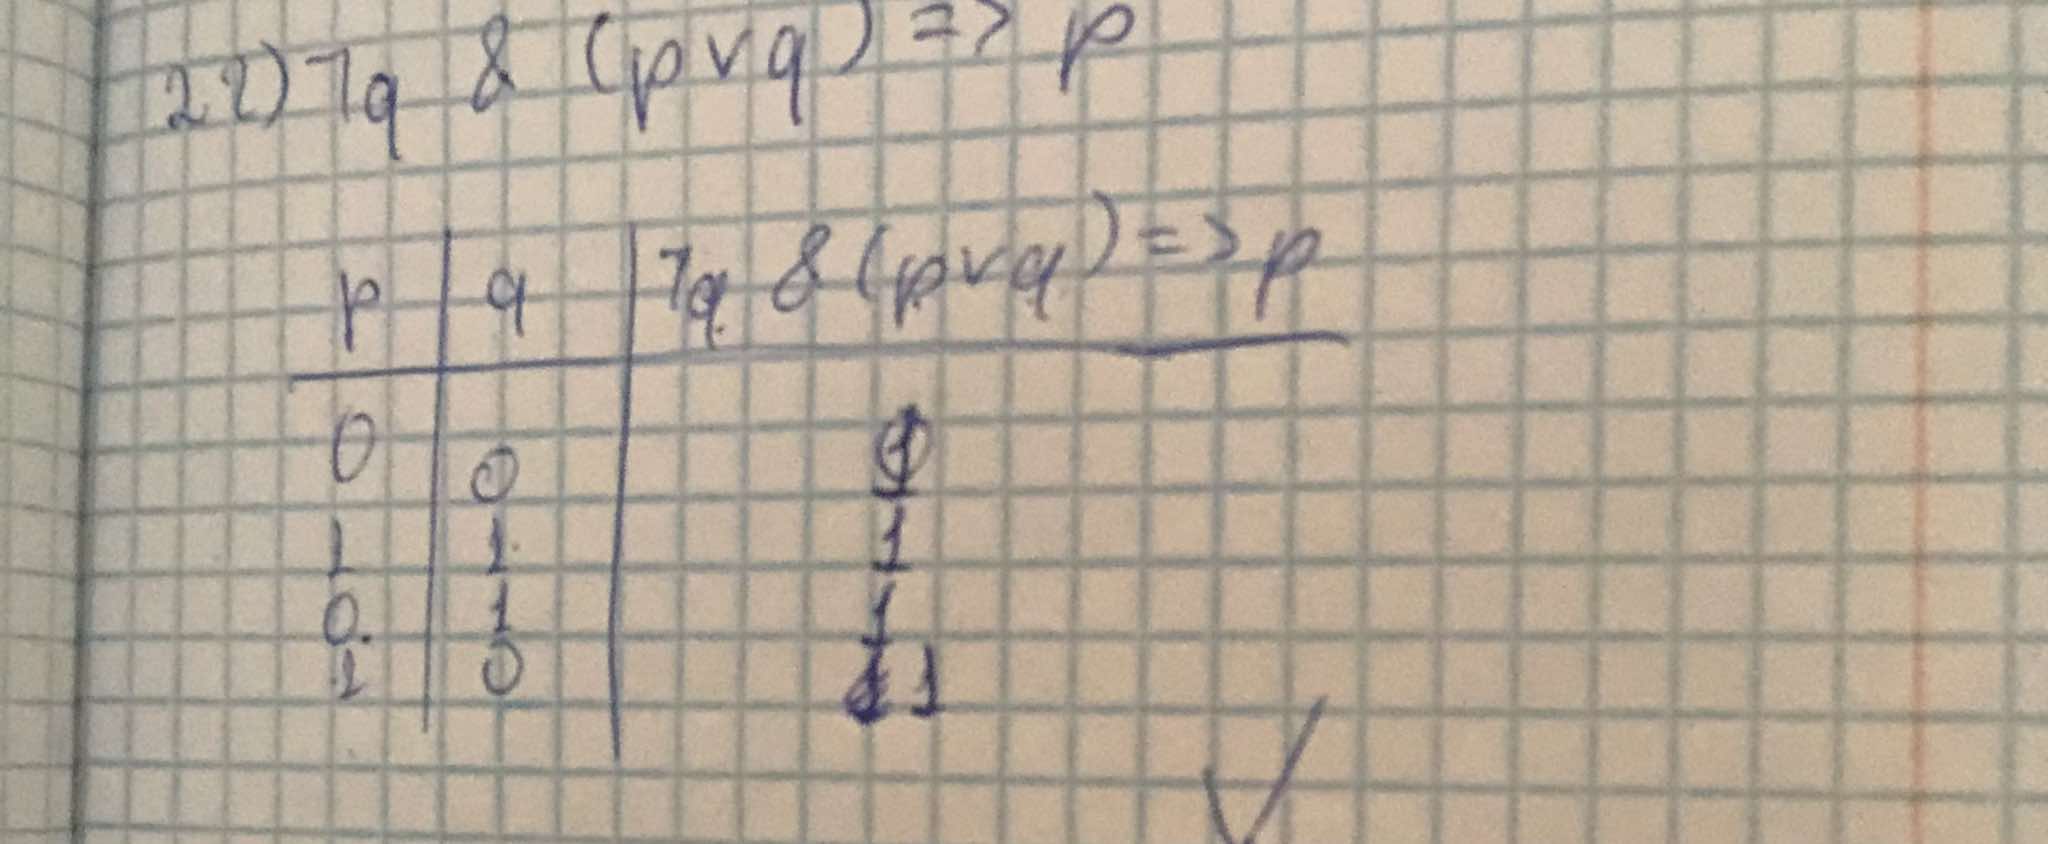 22) ¬q & (p v q) => p
p | q | ¬q & (p v q) => p
0 0 1
1 1 1
0. 1 1
1 0 1